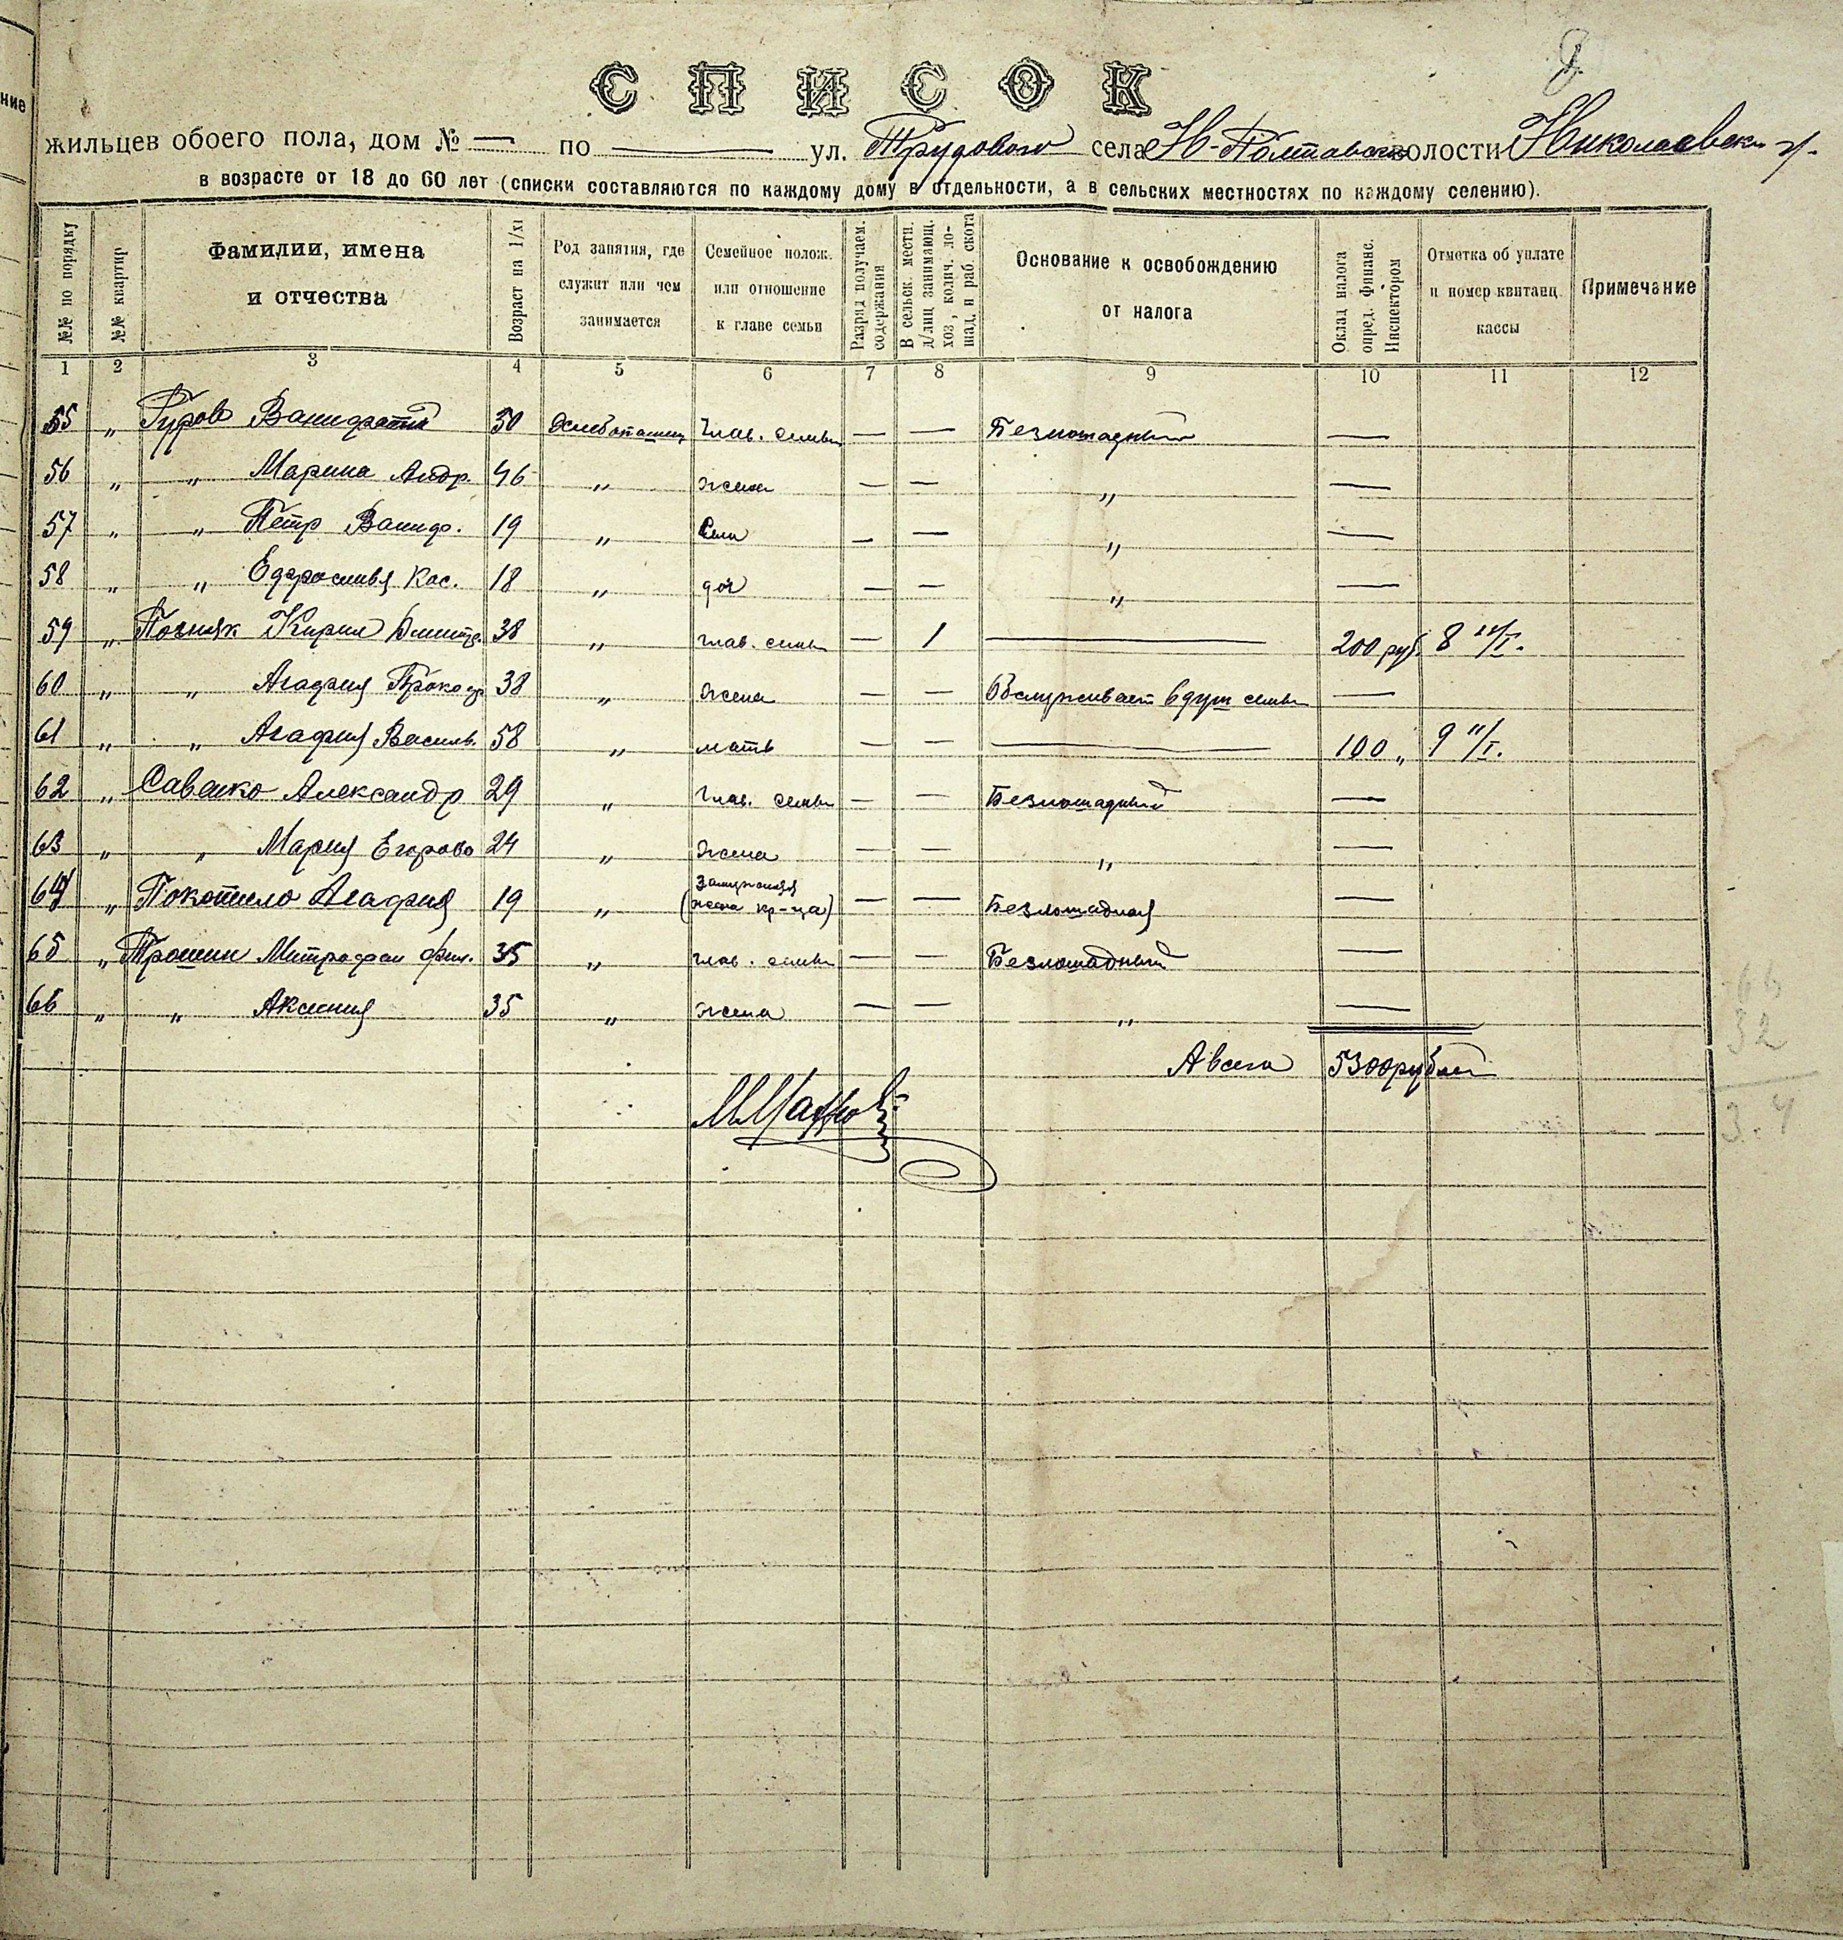 ние
СПИСОК
жильцев обоего пола, дом № — по — ул. Трудового села Н-Полтавск волости Николаевск у.
в возрасте от 18 до 60 лет (списки составляются по каждому дому в отдельности, а в сельских местностях по каждому селению).
№№ по порядку
№№ квартир
Фамилии, имена и отчества
Возраст на 1/XI
Род занятия, где служит или чем занимается
Семейное полож. или отношение к главе семьи
Разряд получаем. содержания
В сельск. местн. д/лиц занимающ. хоз., колич. лошад. и раб. скота
Основание к освобождению от налога
Оклад налога опред. Финанс. Инспектором
Отметка об уплате и номер квитанц. кассы
Примечание
1 2 3 4 5 6 7 8 9 10 11 12
55 " Гуров 50 Хлебопашец Глав. семьи — — Безлошадный —
56 " " Марина Андр. 46 " жена — — " —
57 " " Петр 19 " Сын — — " —
58 " " 18 " доч — — " —
59 " Позняк Кирил Дмитр. 38 " глав. семьи — 1 — 200 руб. 8
60 " " Агафия Прокоф. 38 " Жена — — Обслуживает 6 душ семьи —
61 " " Агафия Василь. 58 " мать — — — 100 " 9 11/I.
62 " Савенко Александр 29 " Глав. семьи — — Безлошадный —
63 " " Мария Егорова 24 " Жена — — " —
64 " Покотило Агафия 19 " Замужняя (жена кр-ца) — — Безлошадная —
65 " Трошин Митрофан Фил. 35 " глав. семьи — — Безлошадный —
66 " " Аксиния 35 " жена — — " —
А всего 5300 рублей
66
32